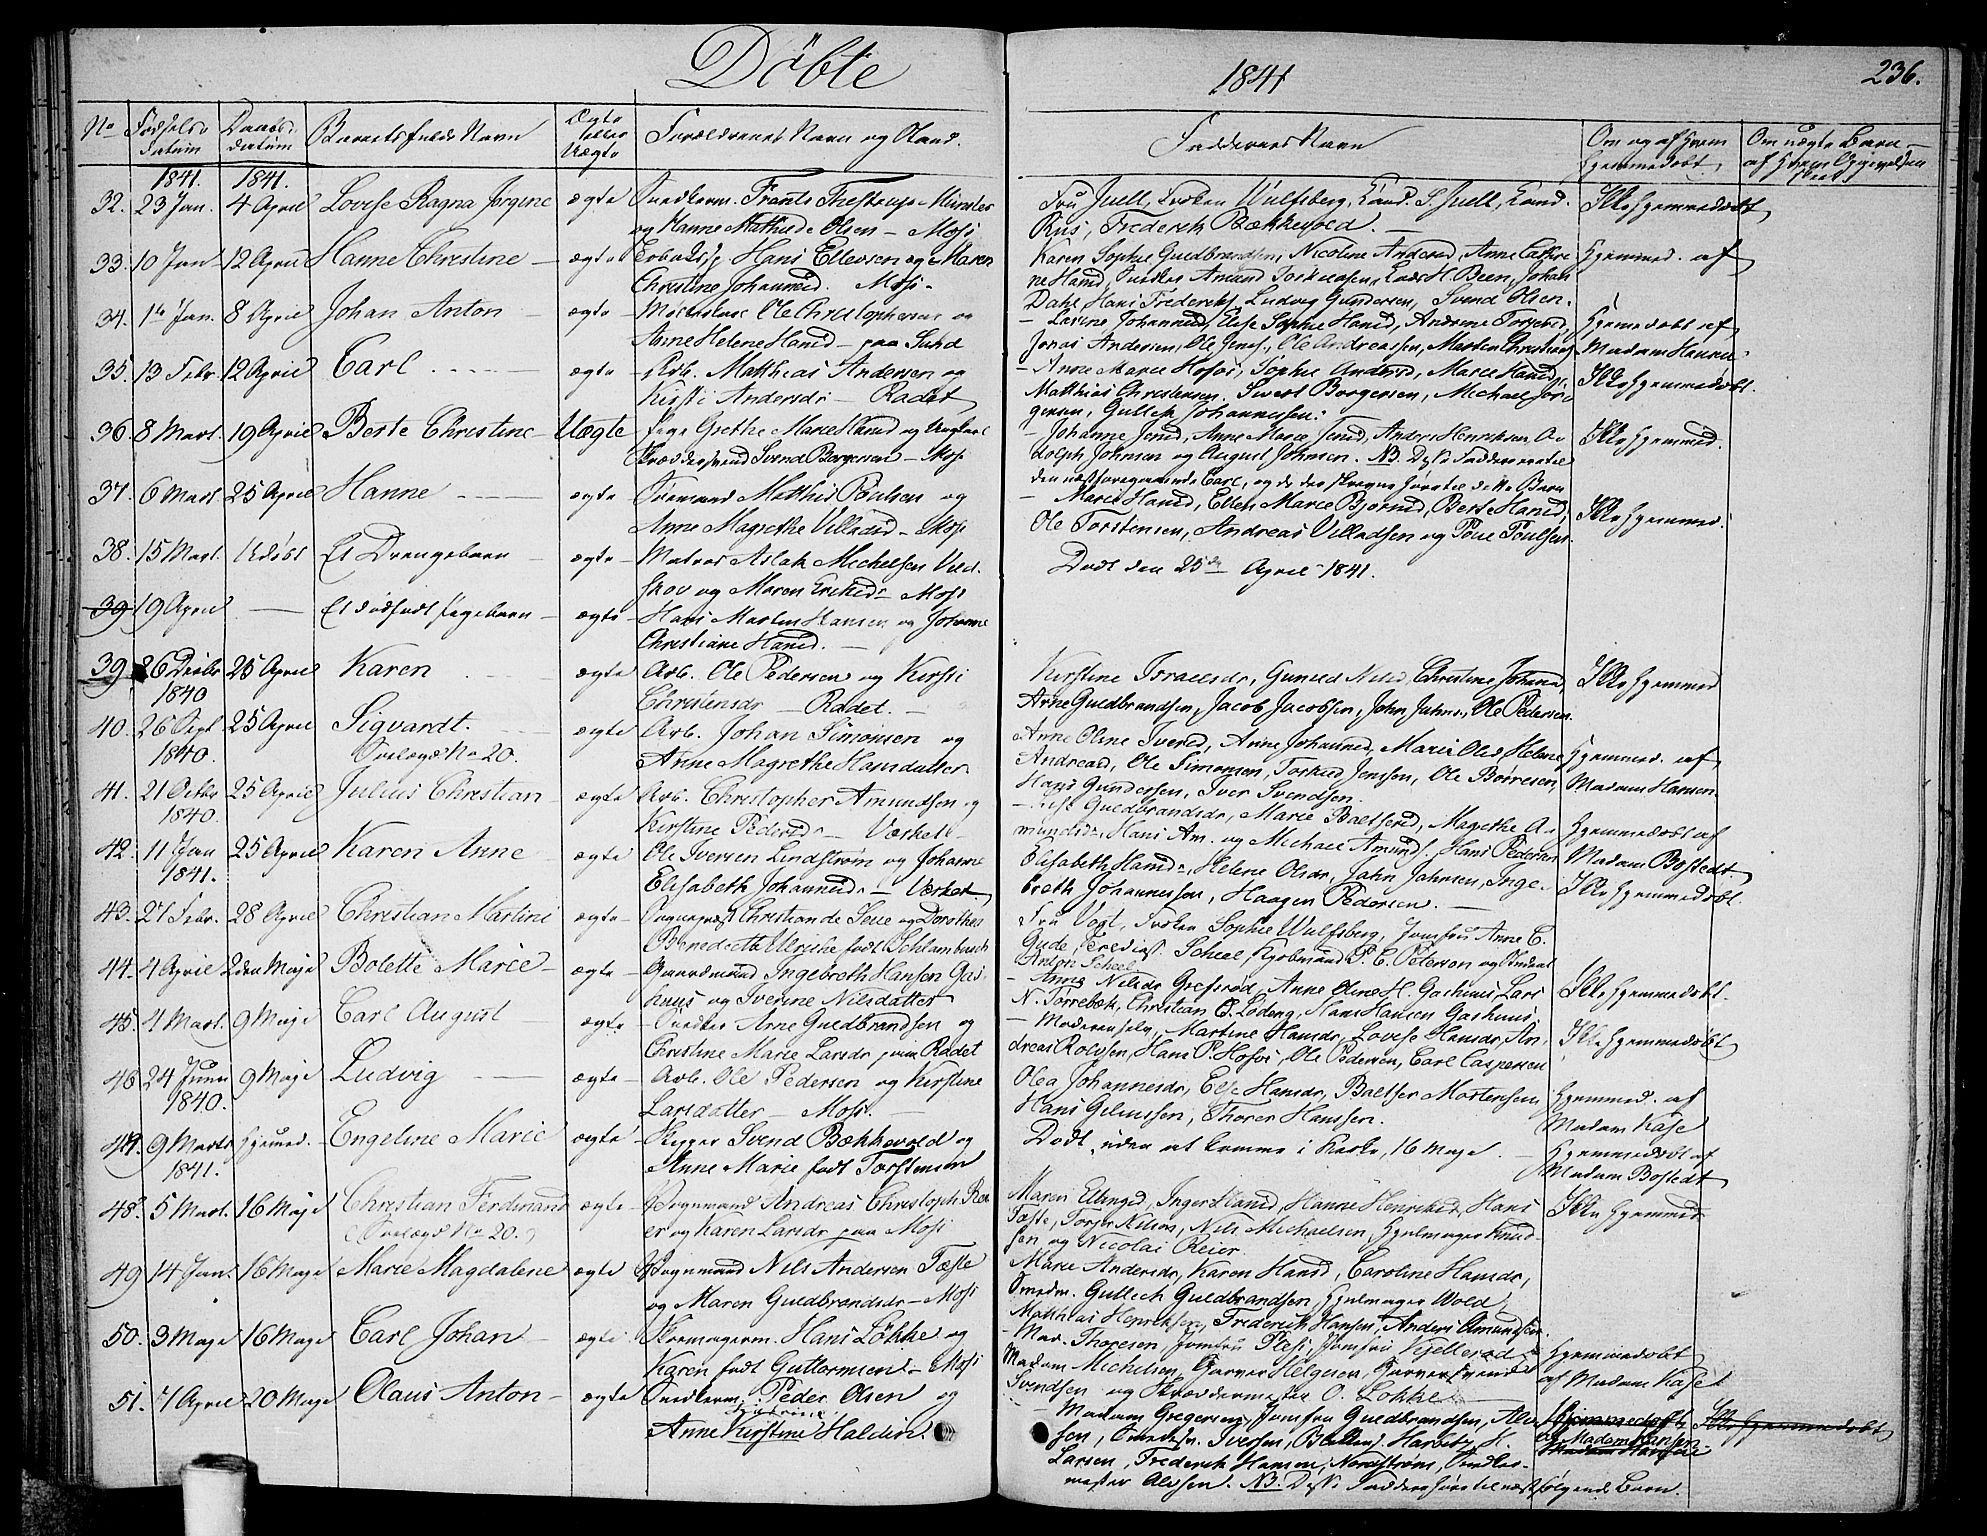 Döbte
1841
236.
No
Födsels datum
Daabs datum
Barnets fulde Navn
Ægte eller Uægte
Forældrenes Navn og Stand.
Faddernes Navn
Om og af Hvem Hjemmedøbt.
Om uægte Barn
1841. 1841.
32. 23 Jan. 4 April Lovise Ragna Jørgine ægte Snedkerm. Frants Thestrup Münster
og Hanne Mathilde Olsen – Moss
Fru Juell, Frøken Wulfsberg, Cand. S. Juell, Cand.
Riis, Frederik Bækkevold.
Ikke hjemmedøbt
33. 10 Jan 12 April Hanne Christine ægte Hans Ellevsen og Maren
Christine Johannesd. Moss.
Karen Sophie Guldbrandsen, Nicoline Andersd, Anne Cathri
ne Hansd, Snedker Amund Torkildsen, Lads H. Been, Johan
Dahl, Hans Frederiks, Ludvig Gundersen, Svend Olsen.
Hjemmed. af
34. 16 Jan. 8 April Johan Anton ægte Ole Christophersen og
Anne Helene Hansd – paa Sund
Larine Johannesd, Else Sophie Hansd, Andrine Torgersd,
Jonas Andersen, Ole Jens., Ole Andreassen, Morten Christians
Hjemmedøbt af
Madam Hansen
35. 13 Febr 12 April Carl ægte Arb. Matthias Andersen og
Kirsti Andersdr – Radet
Anne Marie Hofsv, Sophie Andersd, Marie Hansd,
Matthias Christensen, Sivert Borgersen, Michael Jør
gensen, Gullik Johannessen.
Ikke hjemmedøbt.
36. 8 Mart. 19 April Berte Christine Uægte Pige Grethe Marie Hansd og Ungkarl
Skræddersvend Svend Borgersen – Moss
Johanne Jensd, Anne Marie Jensd, Anders Henriksen A-
dolph Johnsen og August Johnsen. NB. Disse Faddere ere til
den næstforegaaende Carl, og de der skrevne høre til dette Barn
Ikke hjemmed.
37. 6 Mart. 25 April Hanne ægte Sømand Matthis Poulsen og
Anne Magrethe Villadsd – Moss
Marie Hansd, Ellen Marie Bjørnsd, Berte Hansd,
Ole Torstensen, Andreas Villadsen og Poul Poulsen.
Ikke hjemmed.
38. 15 Mart. Udøbt Et Drengebarn ægte Matros Aslak Michelsen Vild-
skov og Maren Eriksd – Moss
Dødt den 25de April 1841.
39 19 April — Et dødfødt Pigebarn ægte Hans Morten Hansen og Johanne
Christiane Hansd.
39 26 Decbr 25 April Karen ægte Arb. Ole Pedersen og Kirsti
1840 Christensdr – Radet.
Kirstine Israelsdr, Gunild Nilsd, Christine Johans,
Arne Guldbrandsen, Jacob Jacobsen, John Johns., Ole Pedersen.
Ikke hjemmed
40. 26 Sept 25 April Sigvardt. ægte Arb. Johan Simonsen og
1840. Omlægd No 20. Anne Magrethe Hansdatter
Anne Oline Iversd, Anne Johannesd, Marie Olsd, Helene
Andreasd, Ole Simonsen, Torkild Jenssen, Ole Børresen,
Hans Gundersen, Iver Svendsen.
Hjemmed. af
Madam Hansen.
41. 21 Octbr 25 April Julius Christian ægte Arb. Christopher Amundsen og
1840. Kirstine Pedersd – Værket
Else Guldbrandsdr, Marie Baltsersd, Magrethe A-
mundsdr, Hans Am. og Michael Amunds. Hans Pedersen
Hjemmedøbt af
Madam Bostedt
42. 11 Jan 25 April Karen Anne ægte Ole Iversen Lindstrøm og Johanne
1841. Elisabeth Johannesd. – Værket.
Elisabeth Hansd, Helene Olsdr, John Johnsen, Inge-
breth Johannessen, Haagen Pedersen.
Ikke hjemmedøbt.
43. 27 Febr. 28 April Christian Martini ægte Sognepræst Christian de Seue og Dorothea
Benedicta Ulrikke født Schlambusch
Fru Vogt, Frøken Sophie Wulfsberg, Jomfru Anne C.
Gude, Scheel, Kjøbmand P. C. Peterson og
Anton Scheel
44. 4 April 2den Maje Bolette Marie ægte Gaardmand Ingebreth Hansen Gas-
huus og Iverine Nilsdatter
Anne Nilsdr Grefsrød, Anne Oline H. Gashuus, Lars
N. Torrebæk, Christian O. Lodeng, Hans Hansen Gashuus.
Ikke hjemmedøbt.
45. 4 Mart. 9 Maje Carl August ægte Snedker Arne Guldbrandsen og
Christine Marie Larsdr paa Radet
Moderen selv, Martine Hansdr, Lovise Hansdr, An-
dreas Rolvsen, Hans P. Hofsv, Ole Pedersen, Carl Caspersen
Ikke hjemmedøbt
46. 24 Juni 9 Maje Ludvig ægte Arb. Ole Pedersen og Kirstine
1840. Larsdatter – Moss.
Olea Johannesdr, Else Hansdr, Baltser Mortensen
Hans Gelmssen, Thorer Hanssen.
Hjemmed. af
Madam Kase
47. 9 Marts Hjemmed. Engeline Marie ægte Skipper Svend Bækkevold og
1841. Anne Marie født Torstensen
Dødt, uden at komme i Kirke, 16 Maje.
Hjemmedøbt af
Madam Bostedt
48. 5 Mart. 16 Maje Christian Ferdinand ægte Vognmand Andreas Christoph Rei-
(Omlægd No 20.) er og Karen Larsdr paa Moss.
Maren Ellingsd, Inger Hansd, Hanne Henriksd, Hans
Tøfte, Torger Nilsen, Nils Michaelsen, Hjulmager Knud-
sen og Nicolai Reier.
Ikke hjemmed
49 14 Jan. 16 Maje Marie Magdalene ægte Vognmand Nils Andersen Tøfte
og Maren Guldbrandsdr – Moss
Marie Andersdr, Karen Hansd, Caroline Hansdr,
Smedm. Gullich Guldbrandsen, Hjulmager Wold,
Matthias Henriksen, Frederich Hansen, Anders Amundsen.
50. 3 Maje 16 Maje Carl Johan ægte Skomagerm. Hans Løkke og
Karen født Guttormsen – Moss
Mad. Thoresen, Jomfru Plesi, Jomfru Kjellerød
Madam Michelsen, Garver Helgesen, Garver
Svendsen og Skræddermester O. Løkke
Hjemmedøbt
af Madam Kase
51. 7 April 20 Maje Olaus Anton ægte Snedkerm. Peder Olsen og
Anne Kirstine Haldin.
Madam Gregersen, Jomfru Guldbrandsen,
sen, Iversen, Harbitz, H.
Larsen, Frederik Hansen, Nordstrøm, Snedker-
mester Olsen. NB. Disse Faddere høre til næstfølgende Barn.
Hjemmedøbt
af Madam Hansen
Ikke hjemmedøbt